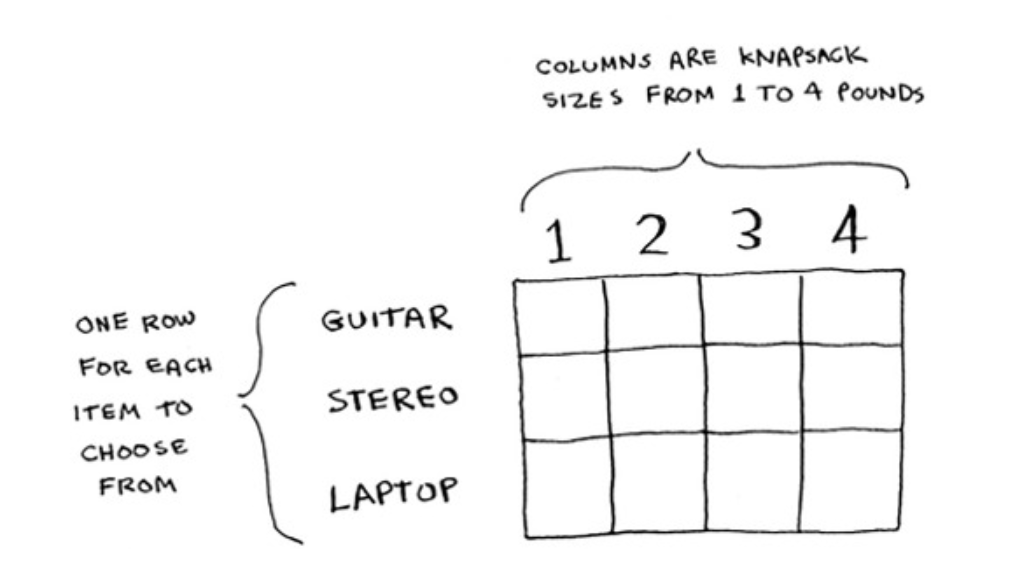 COLUMNS ARE KNAPSACK
SIZES FROM 1 TO 4 POUNDS
1 2 3 4
ONE ROW
FOR EACH
ITEM TO
CHOOSE
FROM
GUITAR
STEREO
LAPTOP